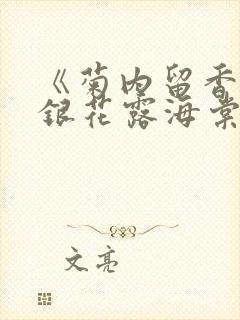 《菊内留香
银花露海棠
文亮